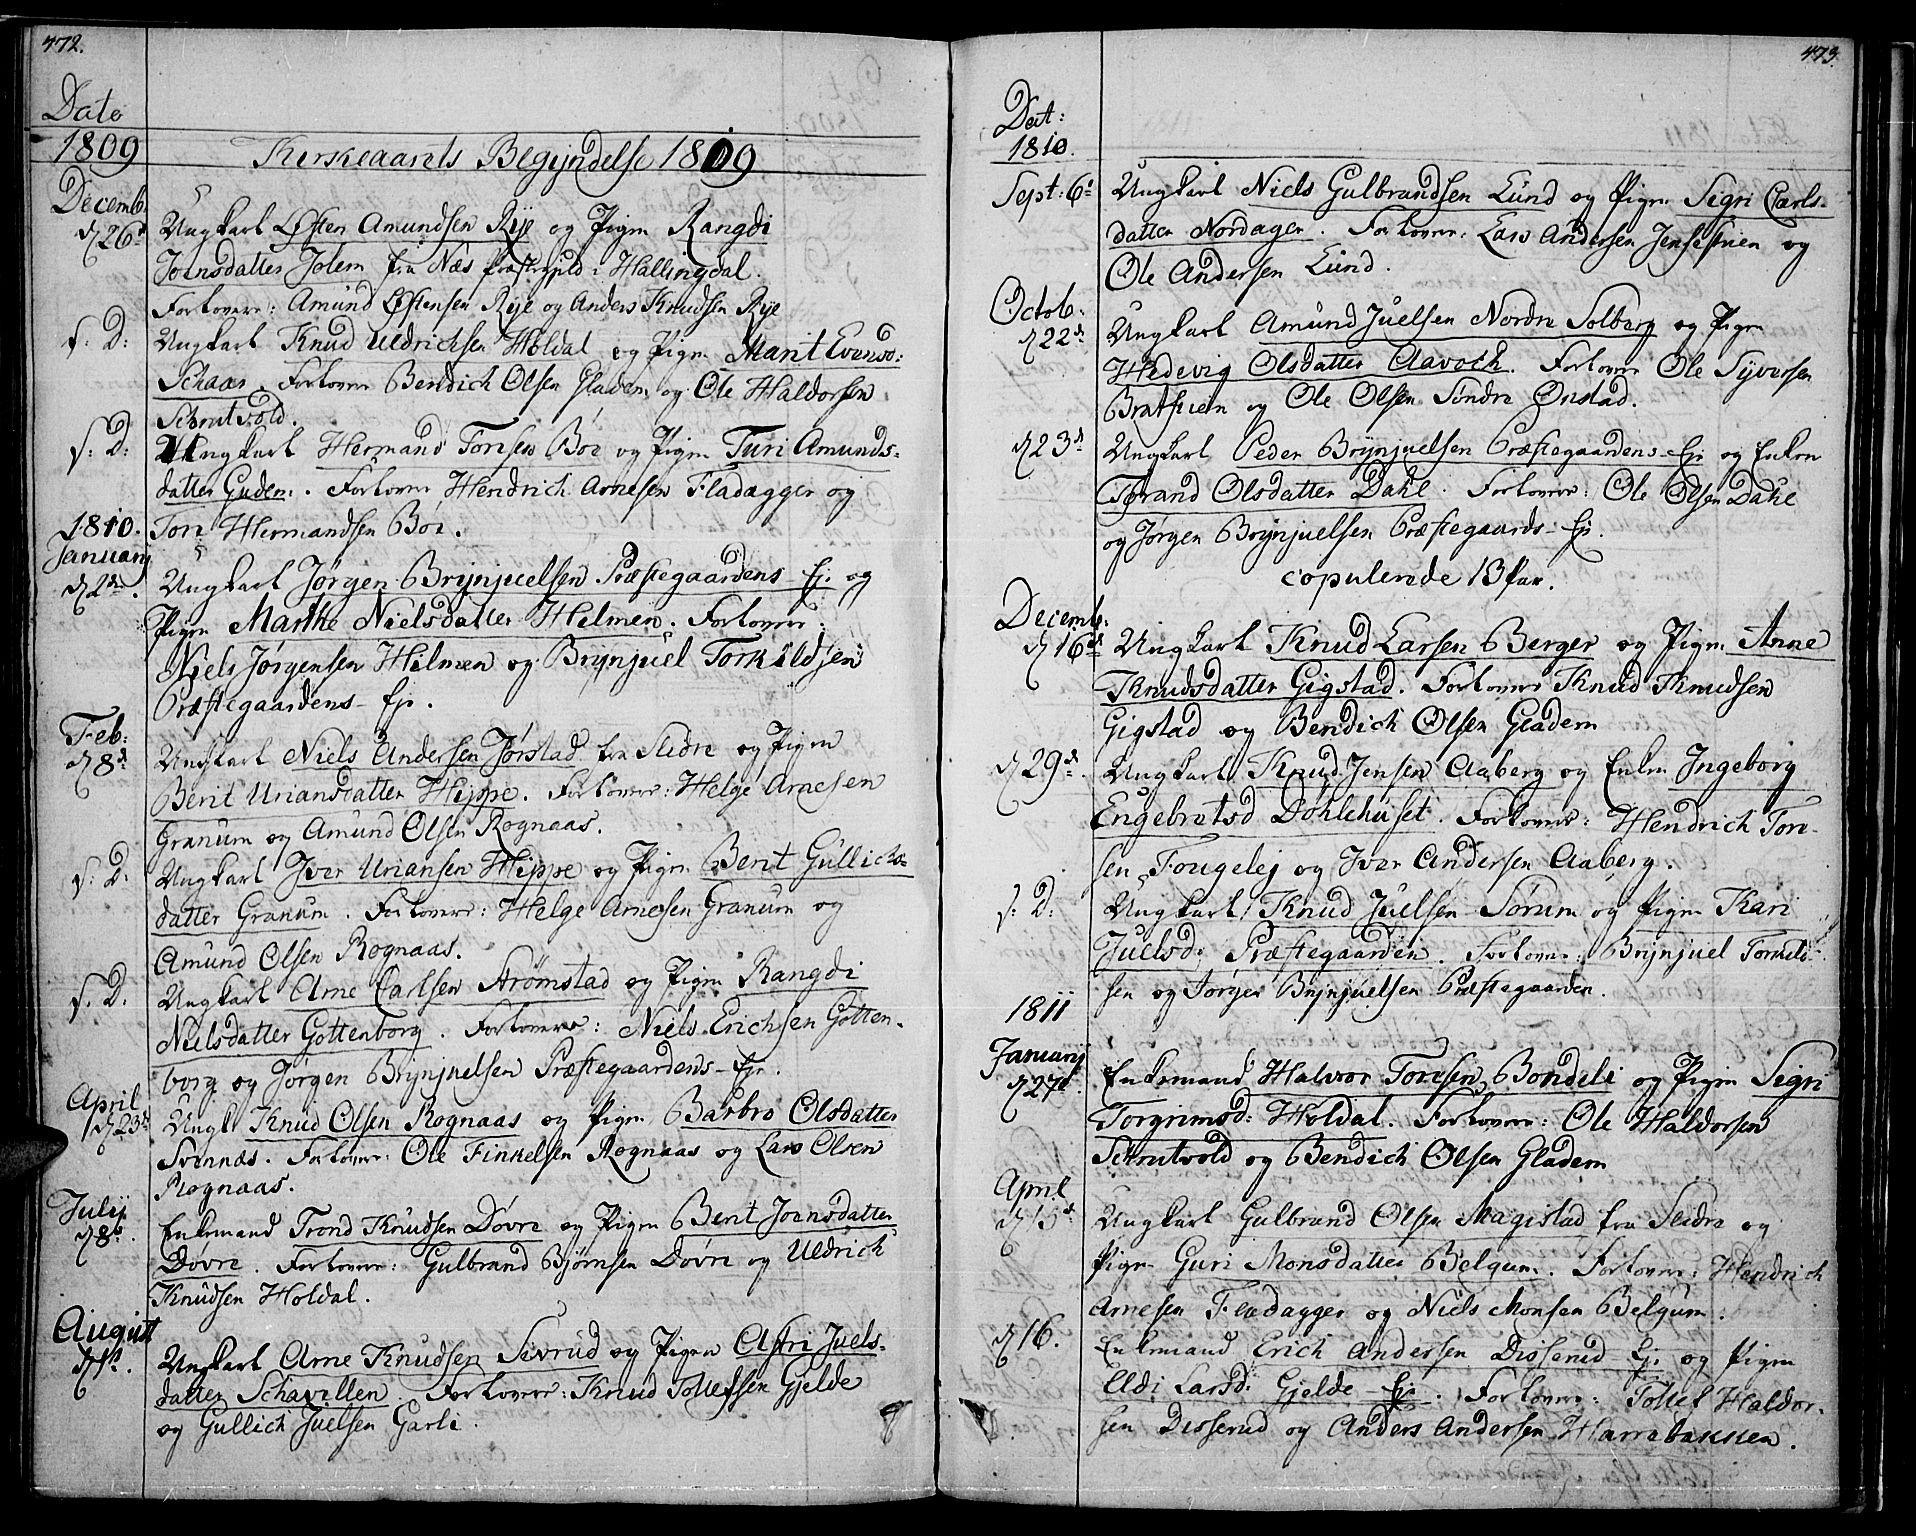 472.
Dato
1809
Kirkeaarets Begÿndelse 1809
Decemb:
d 26d
Ungkarl Østen Amundsen Rÿe og Pigen Rangdi
Joensdatter Jolem fra Næs Præstegield i Hallingdal.
Forlovere: Amund Østensen Rÿe og Anders Knudsen Rÿe
s: D:
Ungkarl Knud Uldrichsen Holdal og Pigen Marit Evensd:
Schaar. Forlovere Bendich Olsen Gladem og Ole Haldorsen
Schrutvold.
s: D:
Ungkarl Hermand Toresen Böe og Pigen Turi Amunds-
datter Gudem. Forlovere Hendrich Arnesen Fladagger og
Tore Hermandsen Böe.
1810.
Januarÿ
d 2den.
Ungkarl Jørgen Brÿnjuelsen Præstegaardens-Eje og
Pigen Marthe Nielsdatter Helmen. Forlovere:
Niels Jørgensen Hilmen og Brÿnjuel Torkildsen
Præstegaardens-Eje.
Feb:
d 8d
Ungkarl Niels Andersen Jørstad fra Slidre og Pigen
Berit Uriansdatter Hippe. Forlovere: Helge Arnesen
Granum og Amund Olsen Rognaas.
s: D:
Ungkarl Iver Uriansen Hippe og Pigen Berit Gullichs-
datter Granum. Forlovere: Helge Arnesen Granum og
Amund Olsen Rognaas.
s: D:
Ungkarl Arne Carlsen Strømstad og Pigen Rangdi
Nielsdatter Gottenborg. Forlovere: Niels Erichsen Gotten-
borg og Jørgen Brÿnjuelsen Præstegaardens-Eje.
April
d 23d
Ungk: Knud Olsen Rognaas og Pigen Barbro Olsdatter
Svennæs. Forlovere: Ole Finkelsen Rognaas og Lars Olsen
Rognaas.
Julÿ
d 8d.
Enkemand Trond Knudsen Dövre og Pigen Berit Joensdatter
Dövre. Forlovere: Gulbrand Björnsen Dövre og Uldrich
Knudsen Holdal.
August
d 1st.
Ungkarl Arne Knudsen Sivrud og Pigen Astri Juels-
datter Schavillen. Forlovere: Knud Tollefsen Gjelde
og Gullich Juelsen Garli.
473.
Dat:
1810.
Sept: 6d
Ungkarl Niels Gulbrandsen Lund og Pigen Sigri Carls-
datter Nordagen. Forlovere: Lars Andersen Jensestuen og
Ole Andersen Lund.
Octob:
d 22d
Ungkarl Amund Juelsen Nordre Solberg og Pigen
Hedevig Olsdatter Aavoth. Forlovere Ole Sÿversen
Brathuen og Ole Olsen Söndre Onstad.
d 23d
Ungkarl Peder Brÿnjuelsen Præstegaardens-Eje og Enken
Torand Olsdatter Dahl. Forlovere: Ole Olsen Dahl
og Jørgen Brÿnjuelsen Præstegaards-Eje.
copulerede 13 Par.
Decemb:
d 16d
Ungkarl Knud Larsen Berger og Pigen Anne
Knudsdatter Gigstad. Forlovere Knud Knudsen
Gigstad og Bendich Olsen Gladem
d 29d.
Ungkarl Knud Jensen Aaberg og Enken Ingeborg
Engebretsd Döhlehuset. Forlovere: Hendrich Tore-
sen Fougelej og Iver Andersen Aaberg.
s: D:
Ungkarl Knud Juelsen Sörum og Pigen Kari
Juelsd: Præstegaarden. Forlovere: Brÿnjuel Torkild-
sen og Jørgen Brÿnjuelsen Præstegaarden.
1811
Januarÿ
d 27d.
Enkemand Halvor Toresen Bondeli og Pigen Sigri
Torgrimsd: Holdal. Forlovere: Ole Haldorsen
Schrutvold og Bendich Olsen Gladem
April
d 15d
Ungkarl Gulbrand Olsen Magistad fra Slidre og
Pigen Guri Monsdatter Belgum. Forlovere: Hendrich
Arnesen Fladagger og Niels Monsen Belgum.
d 16.
Enkemand Erich Andersen Disserud Eje og Pigen
Eldi Larsd: Gjelde-Eje. Forlovere: Tollef Haldor-
sen Disserud og Anders Andersen Harrebakken.